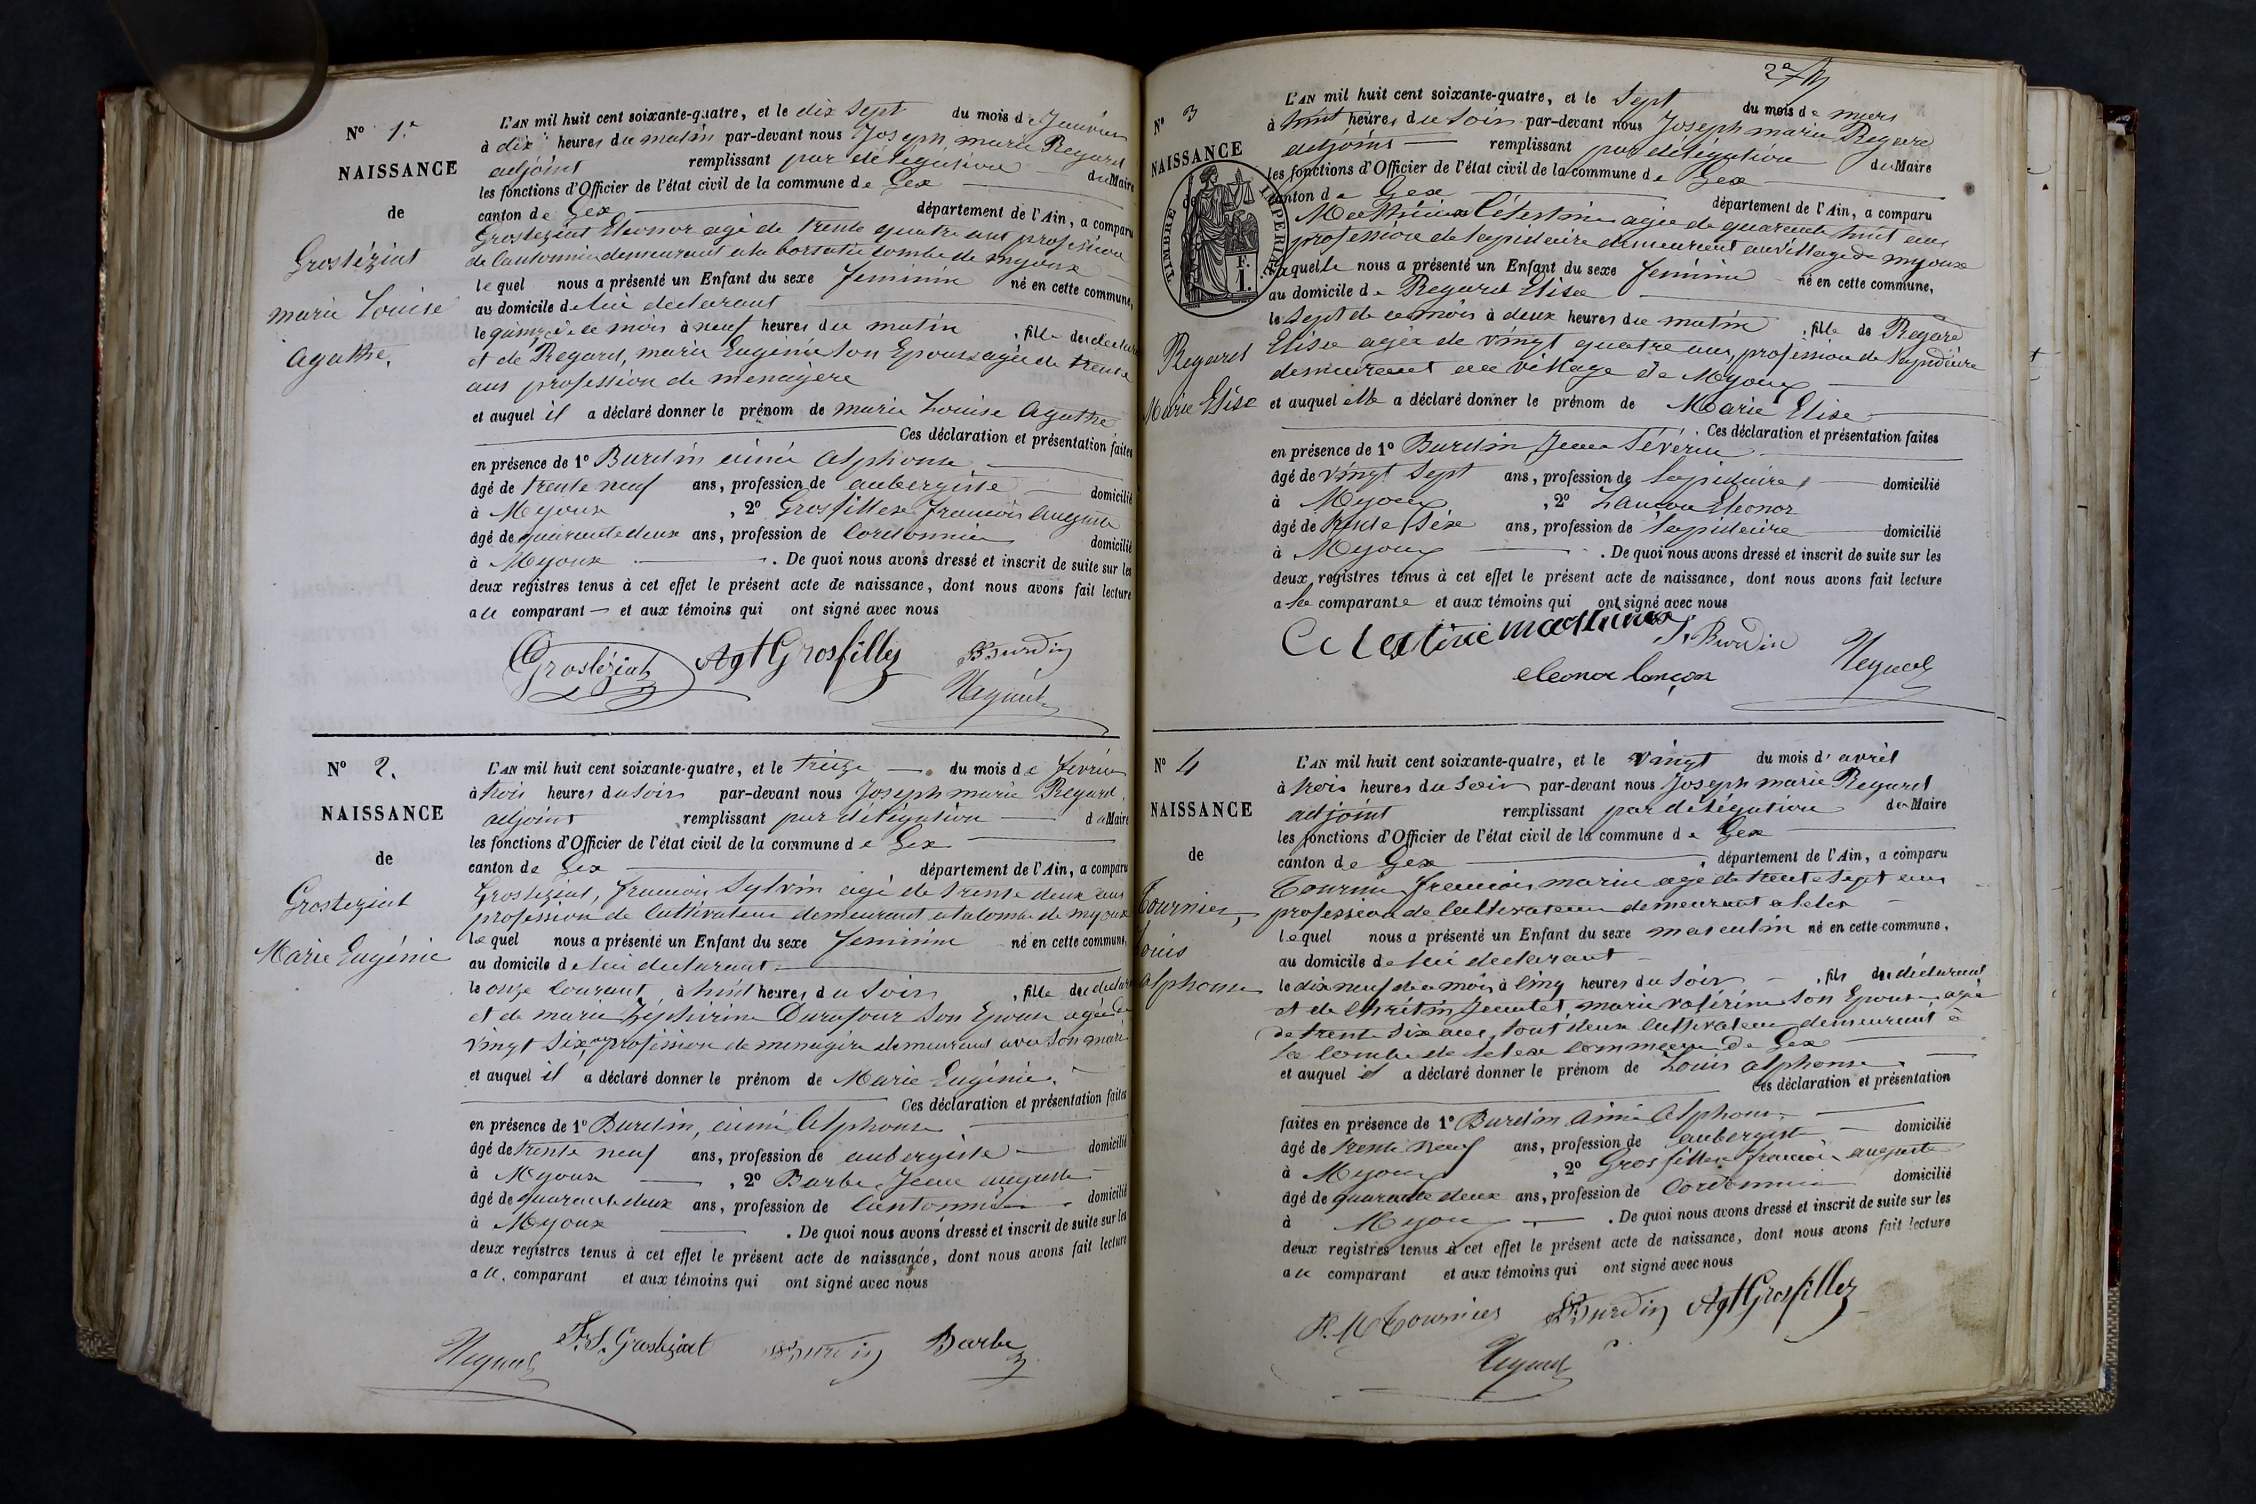 N° 1.er
NAISSANCE
de
Grostéziat
marie Louise
agathe.
L'AN mil huit cent soixante-quatre, et le dix sept du mois de Janvier
à dix heures du matin par-devant nous Joseph marie Regard
adjoint remplissant par délégation du Maire
les fonctions d'Officier de l'état civil de la commune de Gex
canton de Gex département de l'Ain, a comparu
Grosteziat Eleonor agé de trente quatre ans profession
de Cantonnier demeurant a la combe de myoux
lequel nous a présenté un Enfant du sexe feminin né en cette commune,
au domicile de lui declarant
le quinze de ce mois à neuf heures du matin , fille du declarant
et de Regard, marie Eugénie son Epouse agée de trente
ans profession de menagère
et auquel il a déclaré donner le prénom de marie Louise Agathe
Ces déclaration et présentation faites
en présence de 1° Burdin aimé Alphonse
âgé de trente neuf ans, profession de aubergiste domicilié
à Myoux , 2° Grosfillex francois auguste
âgé de quarante deux ans, profession de Cordonnier domicilié
à Myoux . De quoi nous avons dressé et inscrit de suite sur les
deux registres tenus à cet effet le présent acte de naissance, dont nous avons fait lecture
au comparant et aux témoins qui ont signé avec nous
Grostéziat Agt Grosfillex Burdin
Regard
N° 2.
NAISSANCE
de
Grosteziat
Marie Eugénie
L'AN mil huit cent soixante-quatre, et le treize du mois de fevrier
à trois heures du soir par-devant nous Joseph marie Regard,
adjoint remplissant par délégation du Maire
les fonctions d'Officier de l'état civil de la commune de Gex
canton de Gex département de l'Ain, a comparu
Grosteziat, francois Sylvin agé de trente deux ans
profession de Cultivateur demeurant a la combe de myoux
lequel nous a présenté un Enfant du sexe feminin né en cette commune,
au domicile de lui declarant
le onze courant, à huit heures du soir , fille du declarant
et de marie Zéphirine Durafour son Epouse agée de
vingt six ans profession de menagère demeurant avec son mari
et auquel il a déclaré donner le prénom de Marie Eugénie.
Ces déclaration et présentation faites
en présence de 1° Burdin, aimé Alphonse
âgé de trente neuf ans, profession de aubergiste domicilié
à Myoux , 2° Barbe Jean auguste
âgé de quarante deux ans, profession de Cantonnier domicilié
à Myoux . De quoi nous avons dressé et inscrit de suite sur les
deux registres tenus à cet effet le présent acte de naissance, dont nous avons fait lecture
au comparant et aux témoins qui ont signé avec nous
Regard F.S. Grosteziat Burdin Barbe
N° 3
NAISSANCE
de
TIMBRE IMPERIAL
F.
1.
Regard
Marie Elise
L'AN mil huit cent soixante-quatre, et le Sept du mois de mars
à huit heures du soir par-devant nous Joseph marie Regard
adjoint remplissant par delégation du Maire
les fonctions d'Officier de l'état civil de la commune de Gex
canton de Gex département de l'Ain, a comparu
Célestine agée de quarante huit ans
profession de lapidaire demeurant au village de myoux
laquelle nous a présenté un Enfant du sexe feminin né en cette commune,
au domicile de Regard Elise
le Sept de ce mois à deux heures du matin , fille de Regard
Elise agée de vingt quatre ans, profession de lapidaire
demeurant au village de Myoux
et auquel elle a déclaré donner le prénom de Marie Elise
Ces déclaration et présentation faites
en présence de 1° Burdin Jean Sévérin
âgé de vingt sept ans, profession de lapidaire domicilié
à Myoux , 2° Lancon Eleonor
âgé de trente six ans, profession de lapidaire domicilié
à Myoux . De quoi nous avons dressé et inscrit de suite sur les
deux registres tenus à cet effet le présent acte de naissance, dont nous avons fait lecture
a la comparante et aux témoins qui ont signé avec nous
Celestine S. Burdin
eleonor lançon Regard
N° 4
NAISSANCE
de
Tournier,
Louis
alphonse
L'AN mil huit cent soixante-quatre, et le vingt du mois d'avril
à trois heures du soir par-devant nous Joseph marie Regard
adjoint remplissant par delégation du Maire
les fonctions d'Officier de l'état civil de la commune de Gex
canton de Gex , département de l'Ain, a comparu
Tournier francois marie agé de trente sept ans
profession de Cultivateur demeurant a lelex
lequel nous a présenté un Enfant du sexe masculin né en cette commune,
au domicile de lui declarant
le dix neuf de ce mois à cinq heures du soir , fils du déclarant
et de Chritin Jeantet, marie son Epouse agée
de trente six ans, tout deux Cultivateur demeurant à
la combe de lelex commune de Gex
et auquel il a déclaré donner le prénom de Louis alphonse
Ces déclaration et présentation
faites en présence de 1° Burdin aimé Alphonse
âgé de trente neuf ans, profession de aubergiste domicilié
à Myoux , 2° Grosfillex francois auguste
âgé de quarante deux ans, profession de Cordonnier domicilié
à Myoux . De quoi nous avons dressé et inscrit de suite sur les
deux registres tenus à cet effet le présent acte de naissance, dont nous avons fait lecture
au comparant et aux témoins qui ont signé avec nous
F. M Tournier Burdin Agt Grosfillex
Regard